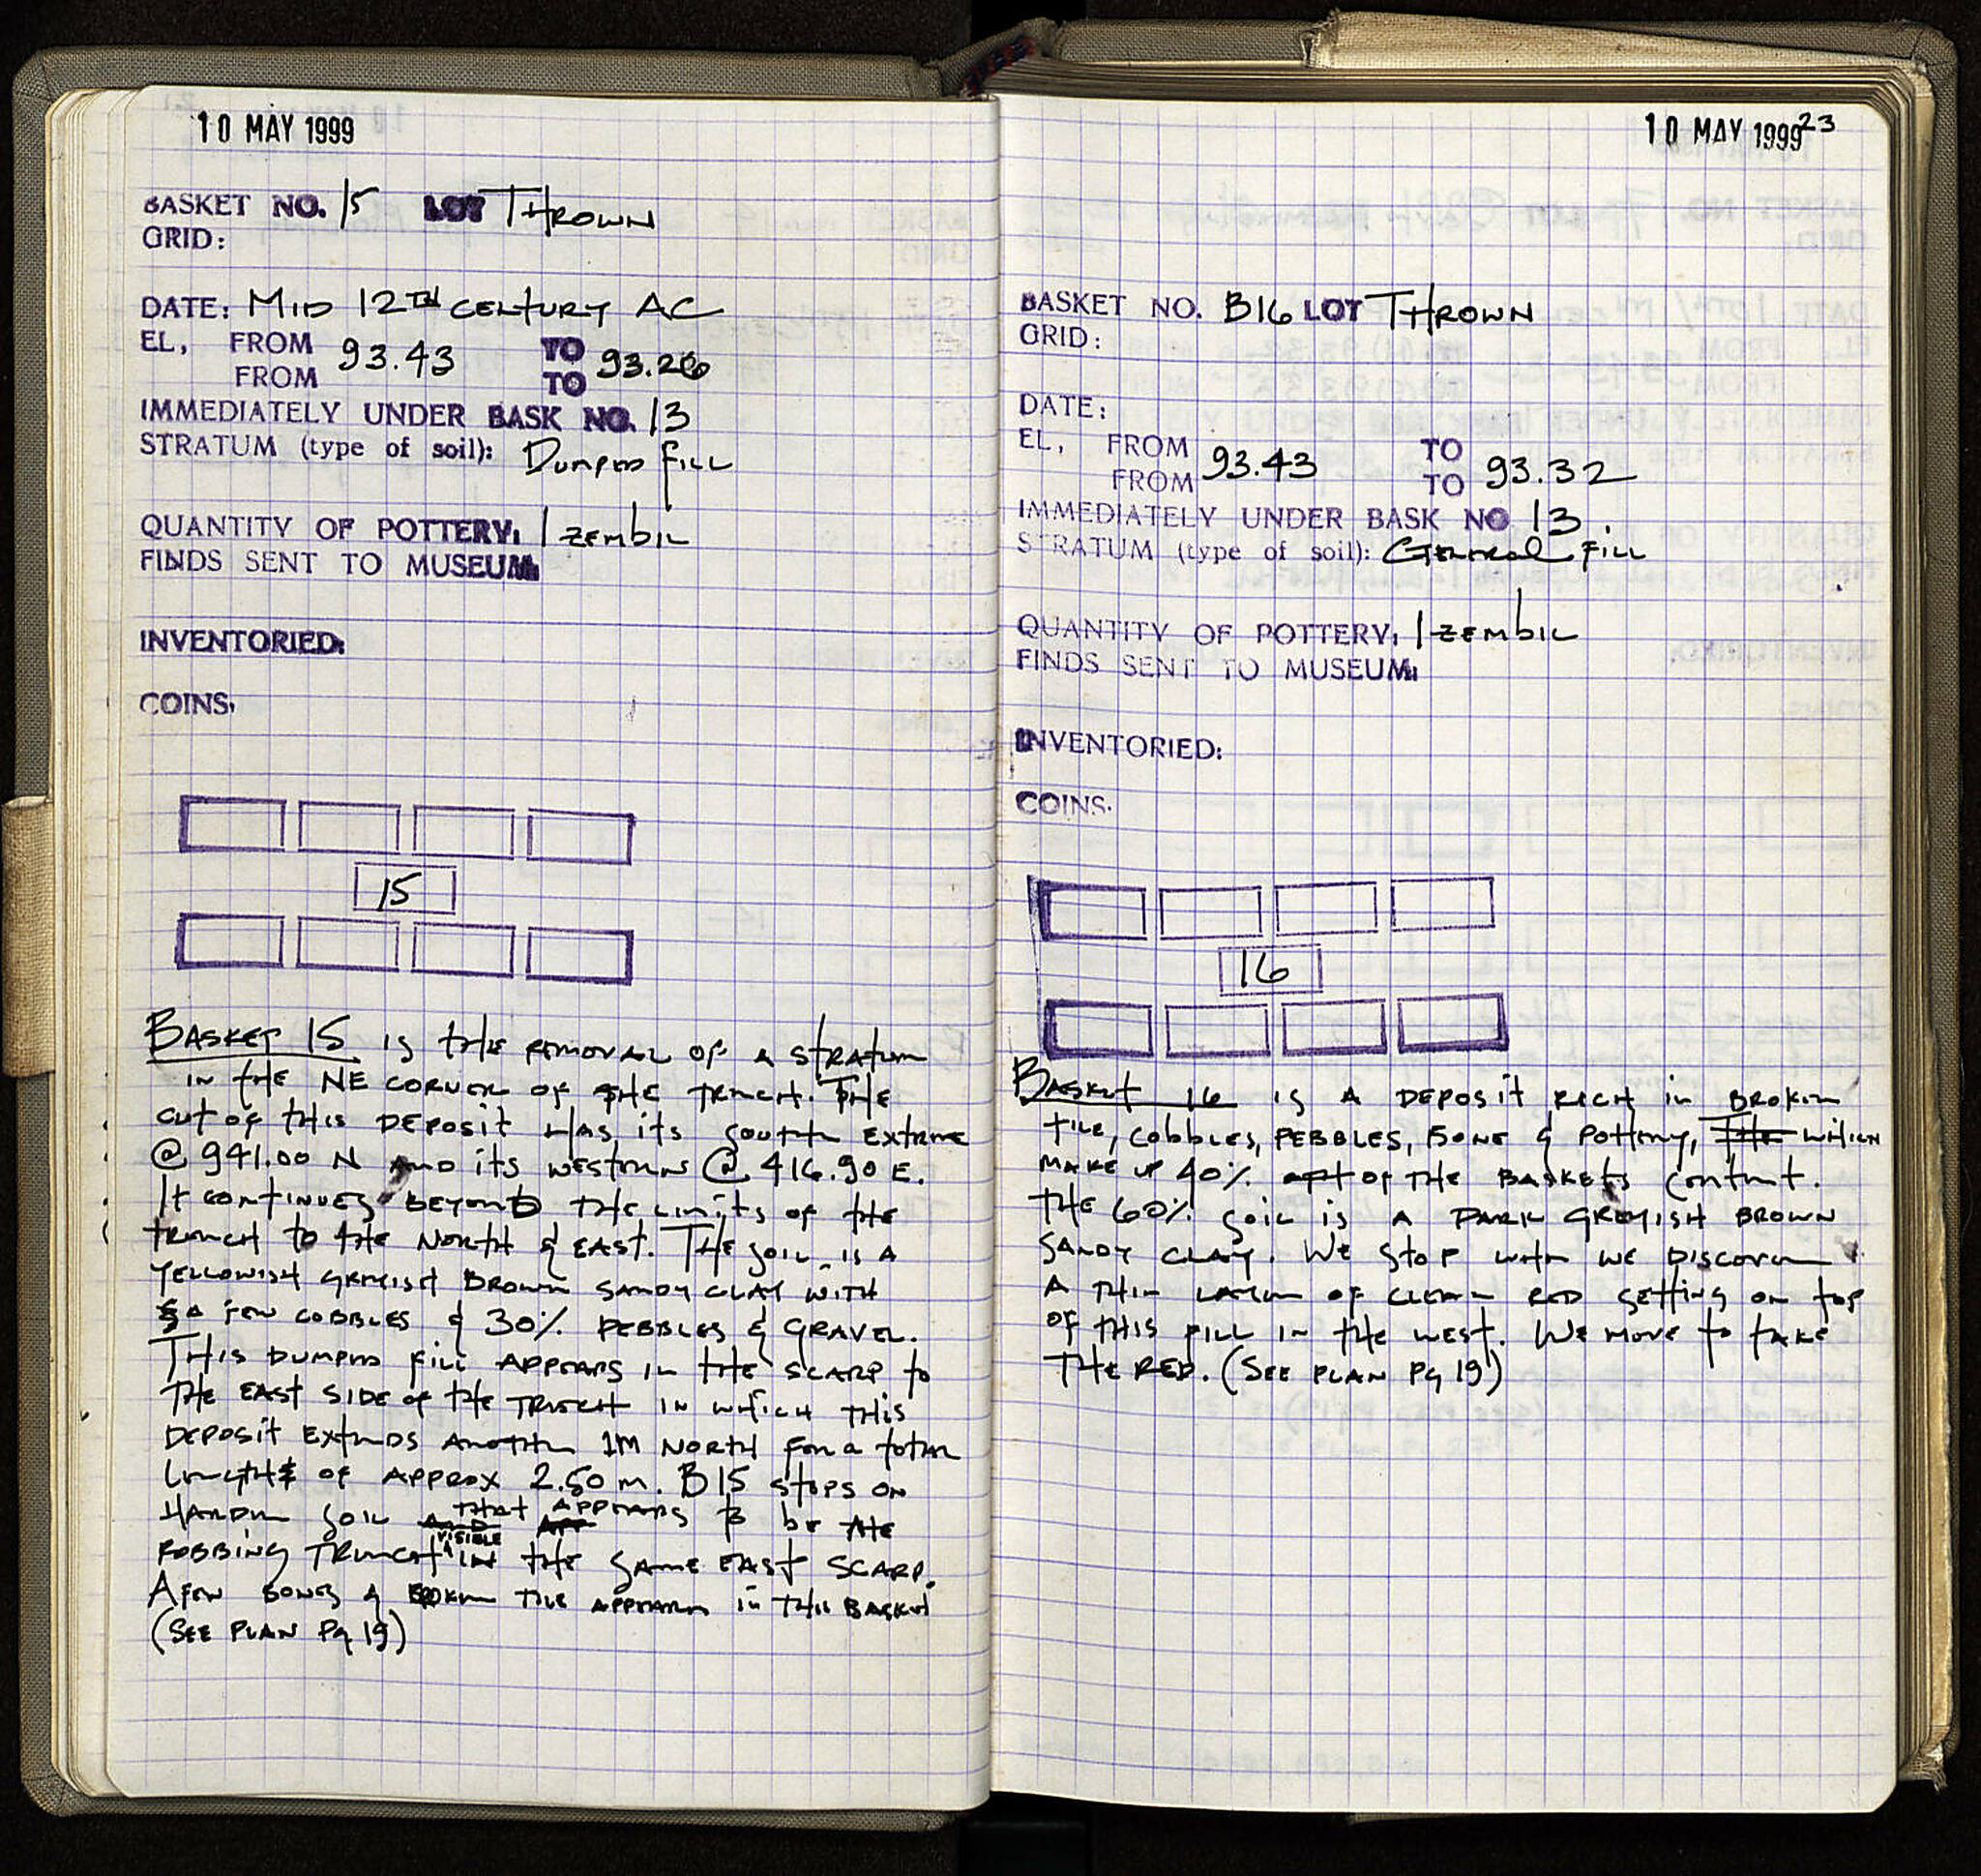 10 MAY 1999
BASKET NO. 15 LOT THROWN
GRID:
DATE: MID 12TH CENTURY AC
EL, FROM 93.43 TO 93.26
FROM TO
IMMEDIATELY UNDER BASK NO. 13
STRATUM (type of soil): DUMPED FILL
QUANTITY OF POTTERY: 1 ZEMBIL
FINDS SENT TO MUSEUM:
INVENTORIED:
COINS:
15
BASKET 15 IS THE REMOVAL OF A STRATUM
IN THE NE CORNER OF THE TRENCH. THE
CUT OF THIS DEPOSIT HAS ITS SOUTH EXTREME
@ 941.00 N AND ITS WESTERN @ 416.90 E.
IT CONTINUES BEYOND THE LIMITS OF THE
TRENCH TO THE NORTH & EAST. THE SOIL IS A
YELLOWISH GREYISH BROWN SANDY CLAY WITH
A FEW COBBLES & 30% PEBBLES & GRAVEL.
THIS DUMPED FILL APPEARS IN THE SCARP TO
THE EAST SIDE OF THE TRENCH IN WHICH THIS
DEPOSIT EXTENDS ANOTHER 1M NORTH FOR A TOTAL
LENGTH OF APPROX 2.50 M. B15 STOPS ON
HARDER SOIL THAT APPEARS TO BE THE
ROBBING TRENCH VISIBLE IN THE SAME EAST SCARP.
A FEW BONES & BROKEN TILE APPEARED IN THIS BASKET
(SEE PLAN PG 19)
10 MAY 1999 23
BASKET NO. B16 LOT THROWN
GRID:
DATE:
EL, FROM 93.43 TO 93.32
FROM TO
IMMEDIATELY UNDER BASK NO 13.
STRATUM (type of soil): GENERAL FILL
QUANTITY OF POTTERY: 1 ZEMBIL
FINDS SENT TO MUSEUM:
INVENTORIED:
COINS:
16
BASKET 16 IS A DEPOSIT RICH IN BROKEN
TILE, COBBLES, PEBBLES, BONE & POTTERY, THE WHICH
MAKE UP 40% OF THE BASKETS CONTENT.
THE 60% SOIL IS A DARK GREYISH BROWN
SANDY CLAY. WE STOP WHEN WE DISCOVER
A THIN LAYER OF CLEAN RED SETTING ON TOP
OF THIS FILL IN THE WEST. WE MOVE TO TAKE
THE RED. (SEE PLAN PG 19)